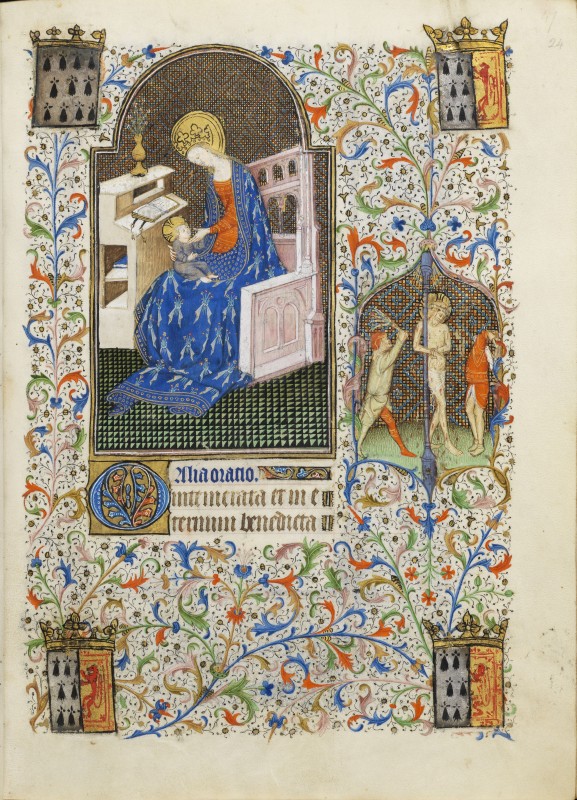 24
Alia oratio.
O intemerata et in e
ternum benedicta